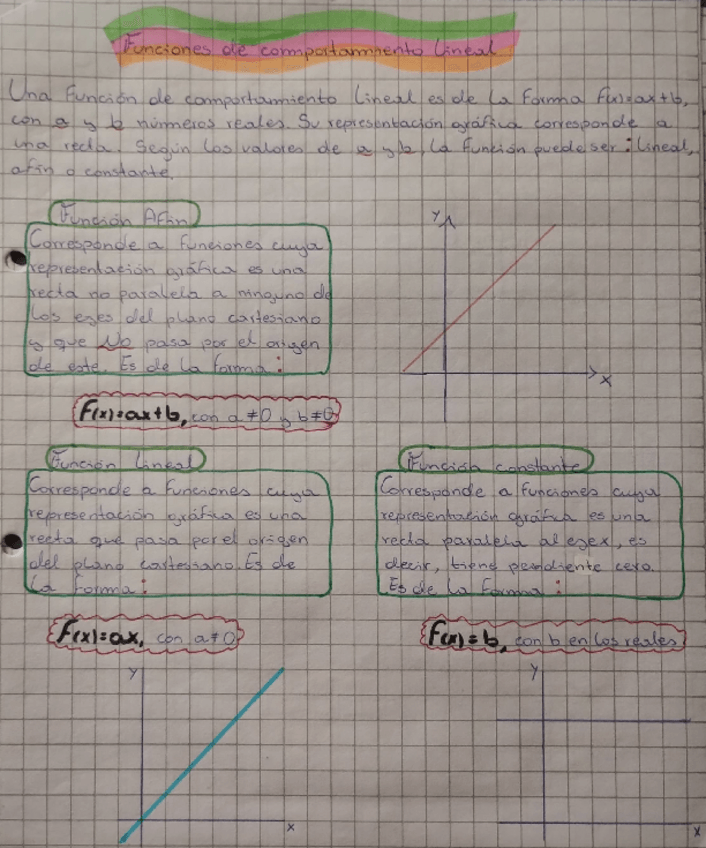 Funciones de comportamiento lineal
Una Función de comportamiento lineal es de la forma F(x)=ax+b,
con a y b números reales. Su representación gráfica corresponde a
una recta. Según los valores de a y b, la función puede ser: lineal,
afín o constante.
Función Afín
Corresponde a funciones cuya
representación gráfica es una
recta no paralela a ninguno de
los ejes del plano cartesiano
y que NO pasa por el origen
de este. Es de la forma:
F(x)=ax+b, con a≠0 y b≠0
Y
X
Función Lineal
Corresponde a funciones cuya
representación gráfica es una
recta que pasa por el origen
del plano cartesiano. Es de
la forma:
F(x)=ax, con a≠0
Función constante
Corresponde a funciones cuya
representación gráfica es una
recta paralela al eje x, es
decir, tiene pendiente cero.
Es de la forma:
F(x)=b, con b en los reales
Y
X
Y
X